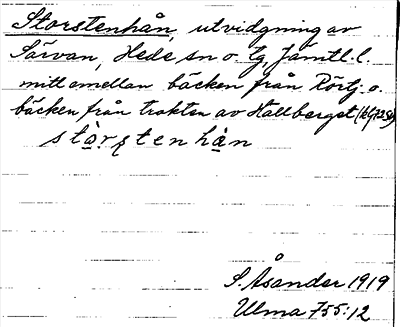 Storstenhån, utvidgning av
Särvan, Hede sn o. tg, Jämtl. l.
mitt emellan bäcken från Rörtj. o.
bäcken från trakten av Hallberget
stòrstenhàn
S. Åsander 1919
Ulma 755:12